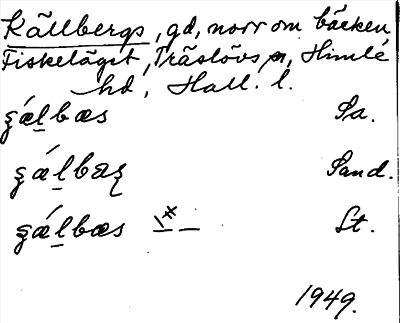 Källbergs, gd, norr om bäcken,
Fiskeläget, Träslövs sn, Himle
hd, Hall. l.
ʂǽl̠bæs Sa.
ʂǽl̠bæʂ Sand.
ʂǽl̠bæs St.
1949.